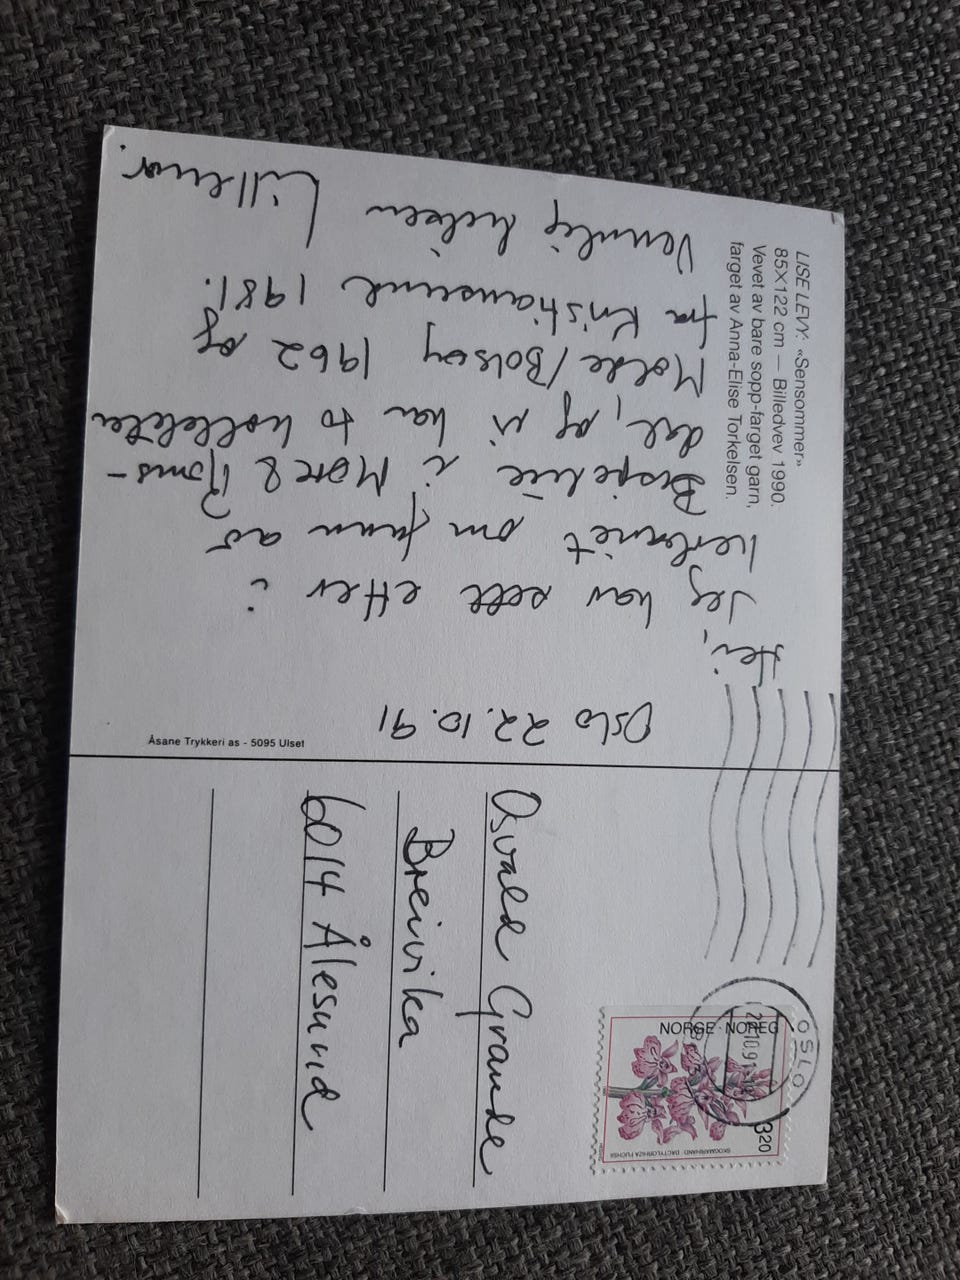 LISE LEVY: «Sensommer»
85X122 cm — Billedvev 1990.
Vevet av bare sopp-farget garn,
farget av Anna-Elise Torkelsen.
Oslo 22.10.91
Hei,
Jeg har sett etter i
herbariet om funn av
Bispelue i Møre & Roms-
dal, og vi har to kollekter
Molde/Bolsøy 1962 og
fra Kristiansund 1981.
Vennlig hilsen Lillemor.
Åsane Trykkeri as - 5095 Ulset
OSLO
22.10.91
NORGE·NOREG
320
SKOGMARIHAND DACTYLORHIZA FUCHSII
Osvald Grande
Breivika
6014 Ålesund